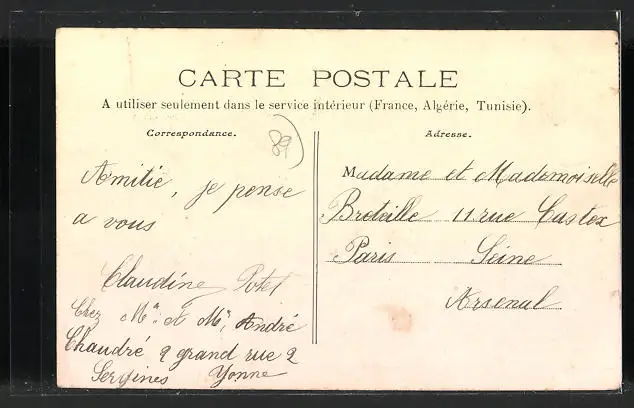 CARTE POSTALE
A utiliser seulement dans le service intérieur (France, Algérie, Tunisie).
Correspondance.
89
Amitié, je pense
a vous
Claudine Potet
Chez Mr et Me André
Chaudré 2 grand rue 2
Sergines Yonne
Adresse.
Madame et Mademoiselle
Breteille 11 rue Castex
Paris Seine
Arsenal